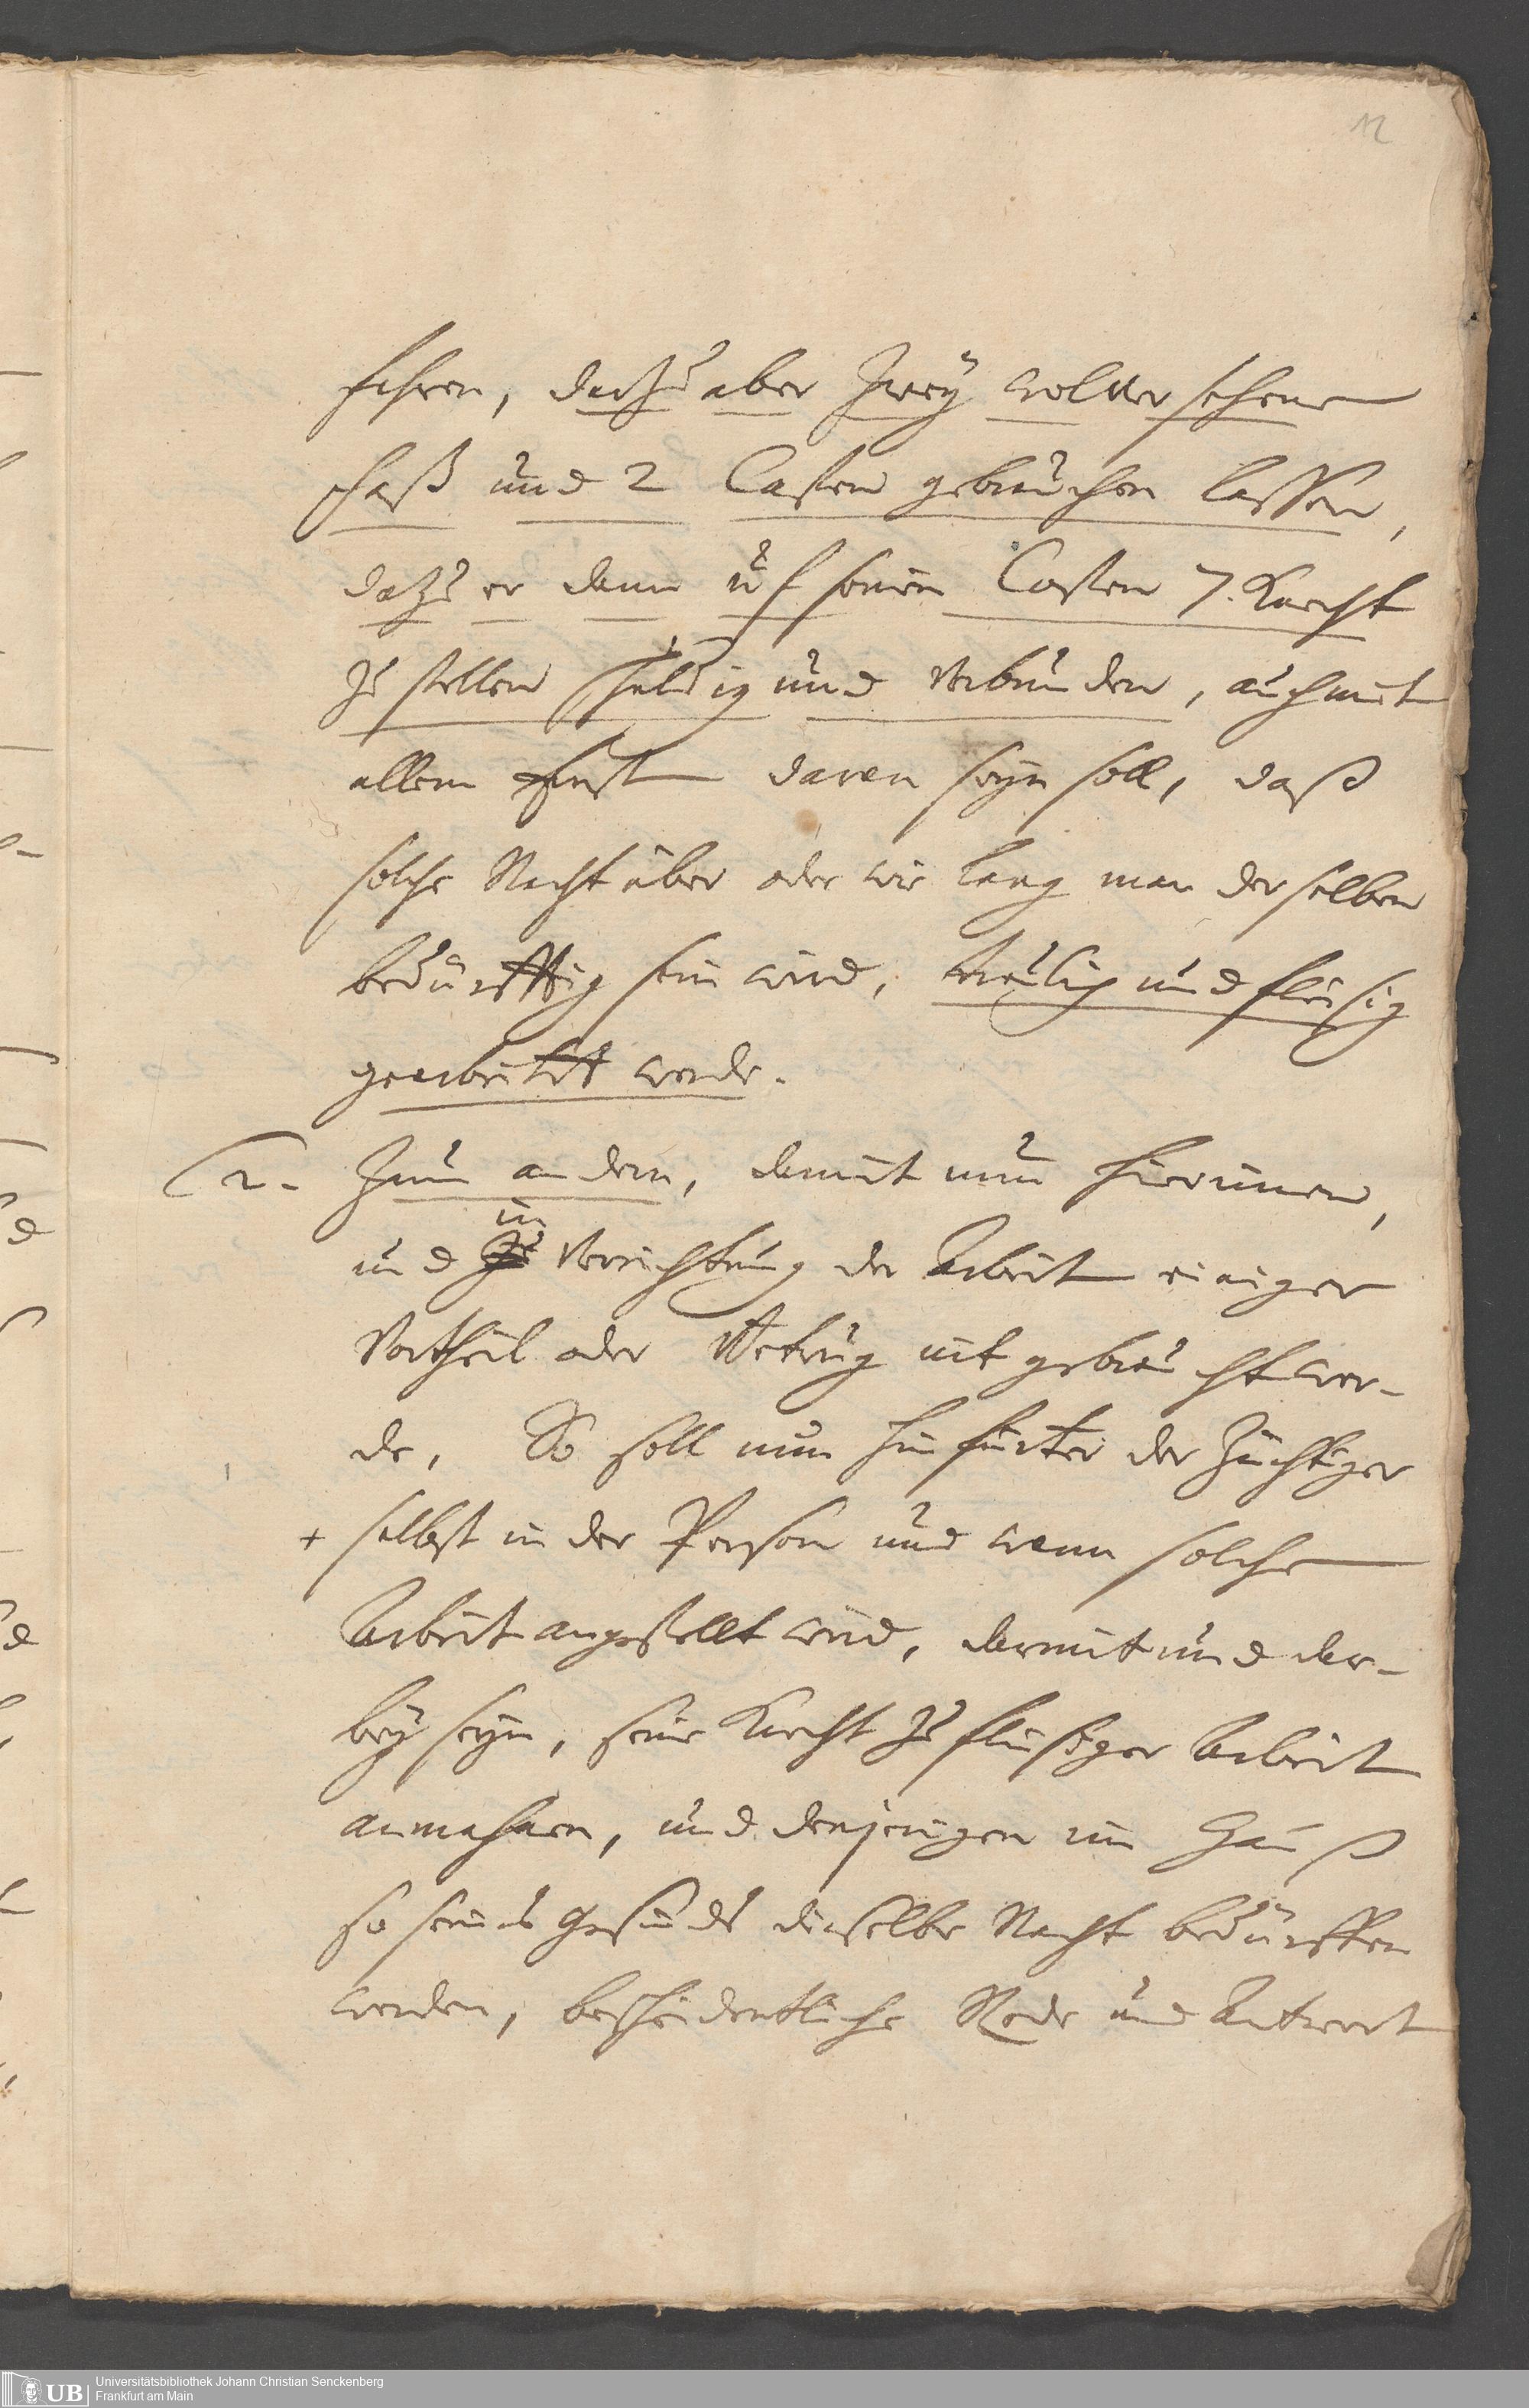 12
fahren, darzu aber Zwey wolversehene
Faß und 2 Casten gebrauchen lassen,
dazu er dann uf seinen Costen 7. Knecht
zu stellen schuldig und verbunden, auch mit
allem Ernst daran seyn soll, daß
solche Nacht über oder wie lang man derselben
bedürfftig sein wird, treulich und fleisig
gearbeitet werde.
2. Zum andern, damit nun hierinnen,
in
und Zu Verrichtung der Arbeit einiger
Vortheil oder Betrug nit gebraucht wer-
de, So soll nun hinfürter der Züchtiger
+ selbst in der Person und wann solche
Arbeit angestellt wird, darmit und dar-
bey seyn, seine Knecht zu fleisiger Arbeit
anmahnen, und denjenigen im Hauß
so seines Gesinds dieselbe Nacht bedürffen
werden, bescheidentliche Rede und Antwort
UB Universitätsbibliothek Johann Christian Senckenberg
Frankfurt am Main